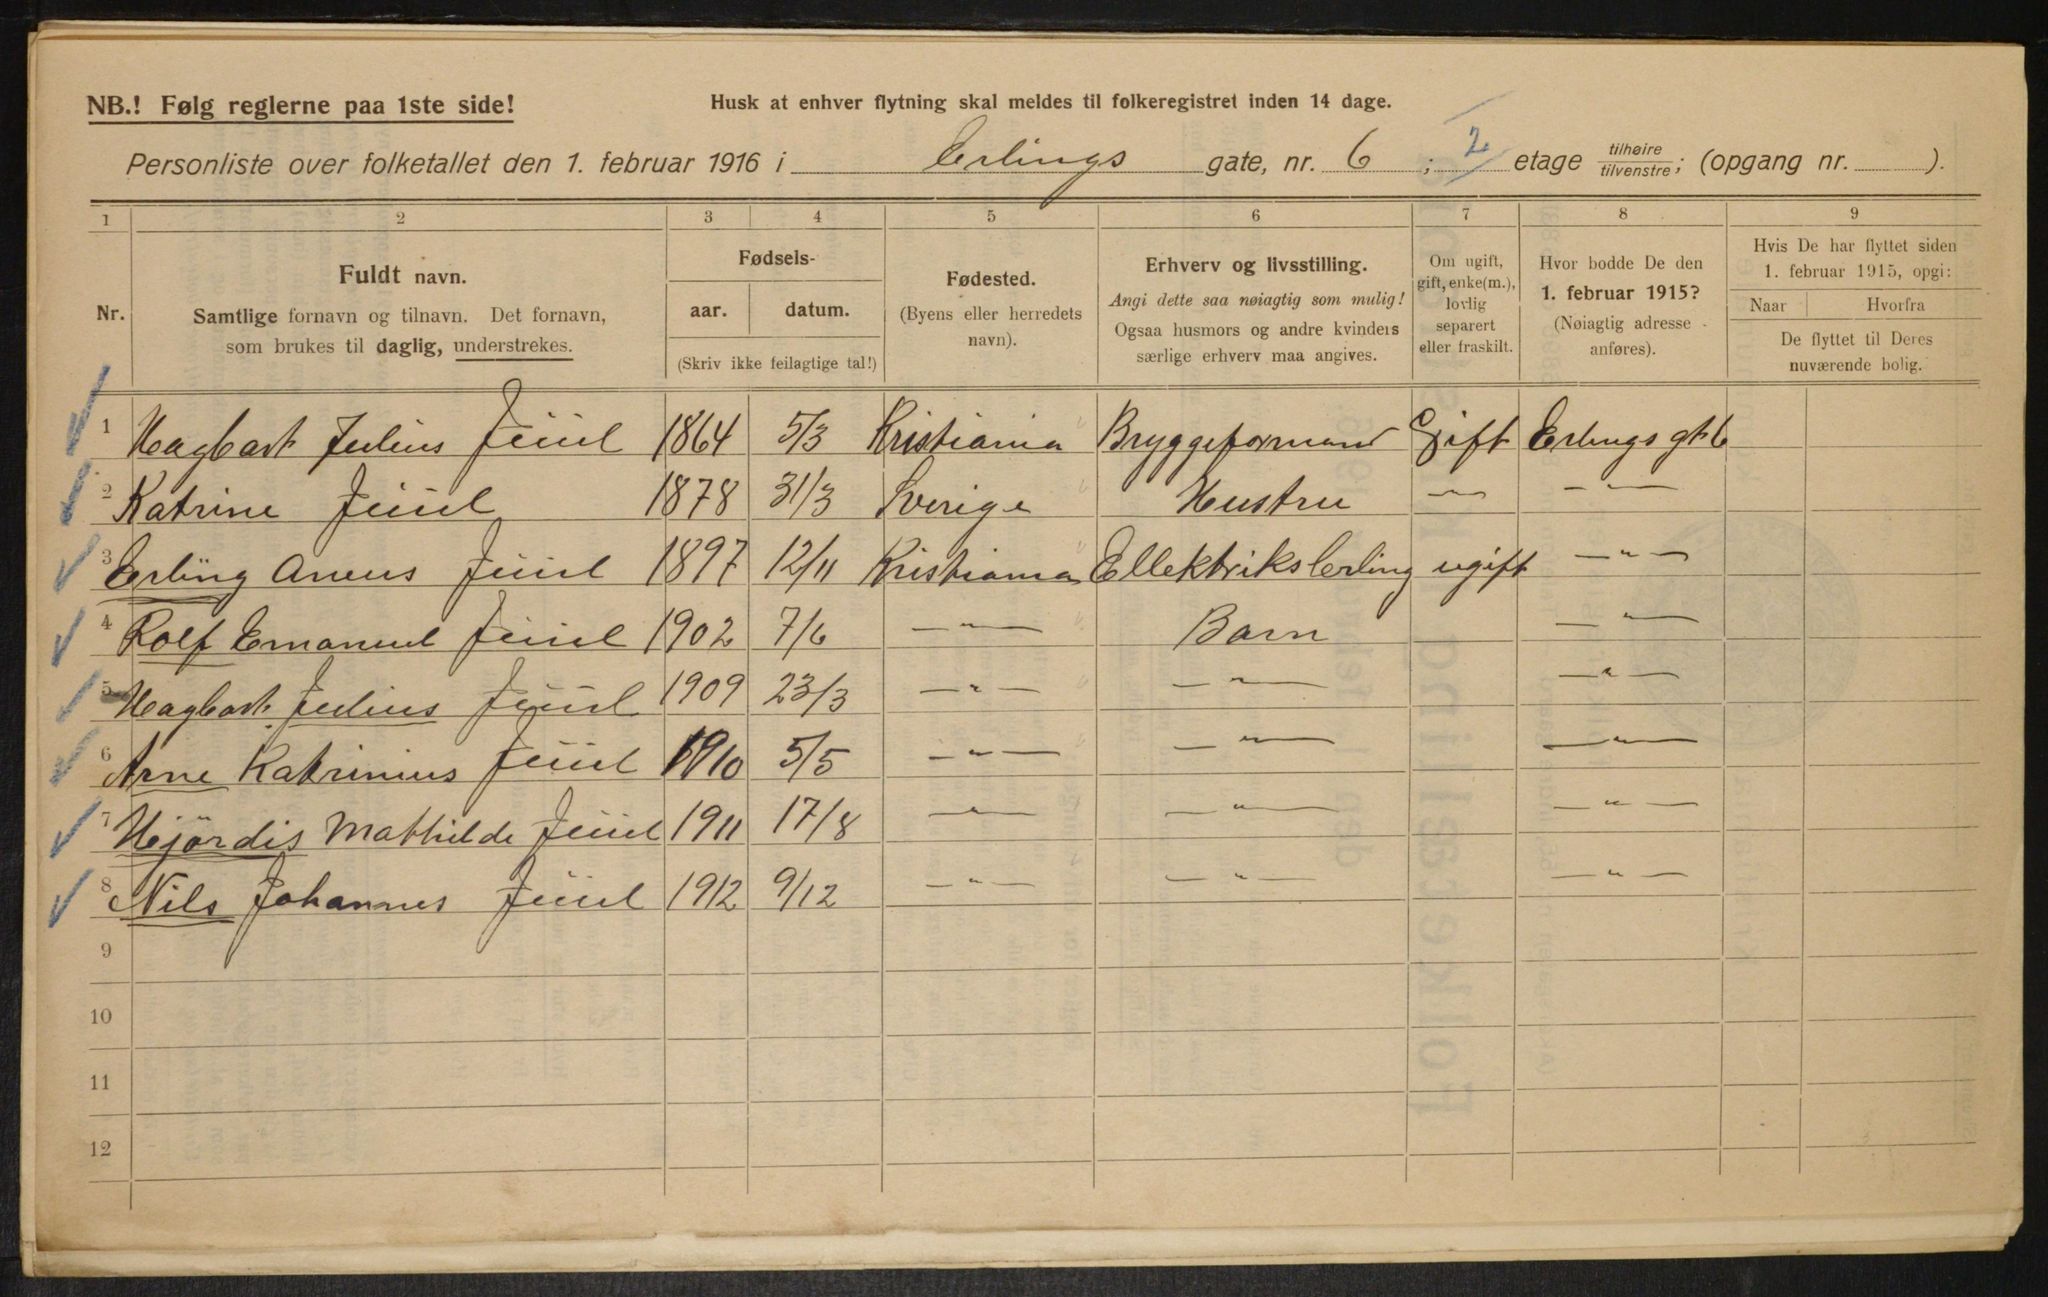 NB.! Følg reglerne paa 1ste side!
Husk at enhver flytning skal meldes til folkeregistret inden 14 dage.
Personliste over folketallet den 1. februar 1916 i Erlings gate, nr. 6 ; 2 etage tilhøire/tilvenstre; (opgang nr. ).
1 2 3 4 5 6 7 8 9
Nr.
Fuldt navn.
Samtlige fornavn og tilnavn. Det fornavn,
som brukes til daglig, understrekes.
Fødsels-
aar. datum.
(Skriv ikke feilagtige tal!)
Fødested.
(Byens eller herredets
navn).
Erhverv og livsstilling.
Angi dette saa nøiagtig som mulig!
Ogsaa husmors og andre kvinders
særlige erhverv maa angives.
Om ugift,
gift, enke(m.),
lovlig
separert
eller fraskilt.
Hvor bodde De den
1. februar 1915?
(Nøiagtig adresse
anføres).
Hvis De har flyttet siden
1. februar 1915, opgi:
Naar Hvorfra
De flyttet til Deres
nuværende bolig.
1 Hagbart Julius Juul 1864 5/3 Kristiania Bryggeformand Gift Erlings gt 6
2 Katrine Juul 1878 31/3 Sverige Hustru — — " —
3 Erling Juul 1897 12/11 Kristiania Ellektrikslerling ugift — " —
4 Rolf Emanuel Juul 1902 7/6 — " — Barn — " —
5 Hagbart Julius Juul 1909 23/3 — " — — " — — " —
6 Arne Katrinius Juul 1910 5/5 — " — — " — — " —
7 Hjördis Mathilde Juul 1911 17/8 — " — — " — — " —
8 Nils Johannes Juul 1912 9/12 — " — — " — — " —
9
10
11
12